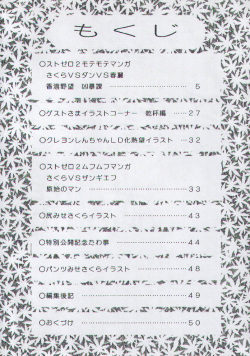 もくじ
○ストゼロ2モテモテマンガ
さくらVSダンVS春麗
香港野望 凶暴課 ……… 5
○ゲストさまイラストコーナー 乾杯編 …27
○クレヨンしんちゃんLD化熱望イラスト …32
○ストゼロ2ムフムフマンガ
さくらVSザンギエフ
原始のマン ……………33
○尻みせさくらイラスト ……………43
○特別公開記念たわ事 ……………44
○パンツみせさくらイラスト …………48
○編集後記 ……………49
○おくづけ ……………50